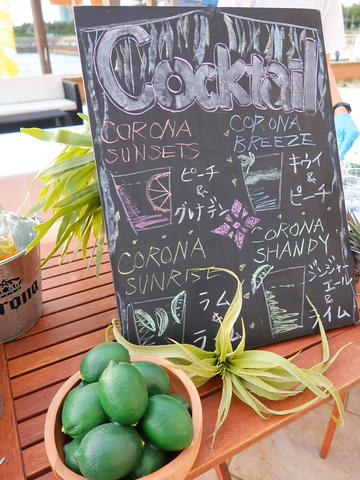 Cocktail
CORONA
SUNSETS
ピーチ
&
グレナデン
CORONA
BREEZE
キウイ
&
ピーチ
CORONA
SUNRISE
ラム
&
CORONA
SHANDY
ジンジャー
エール
&
ライム